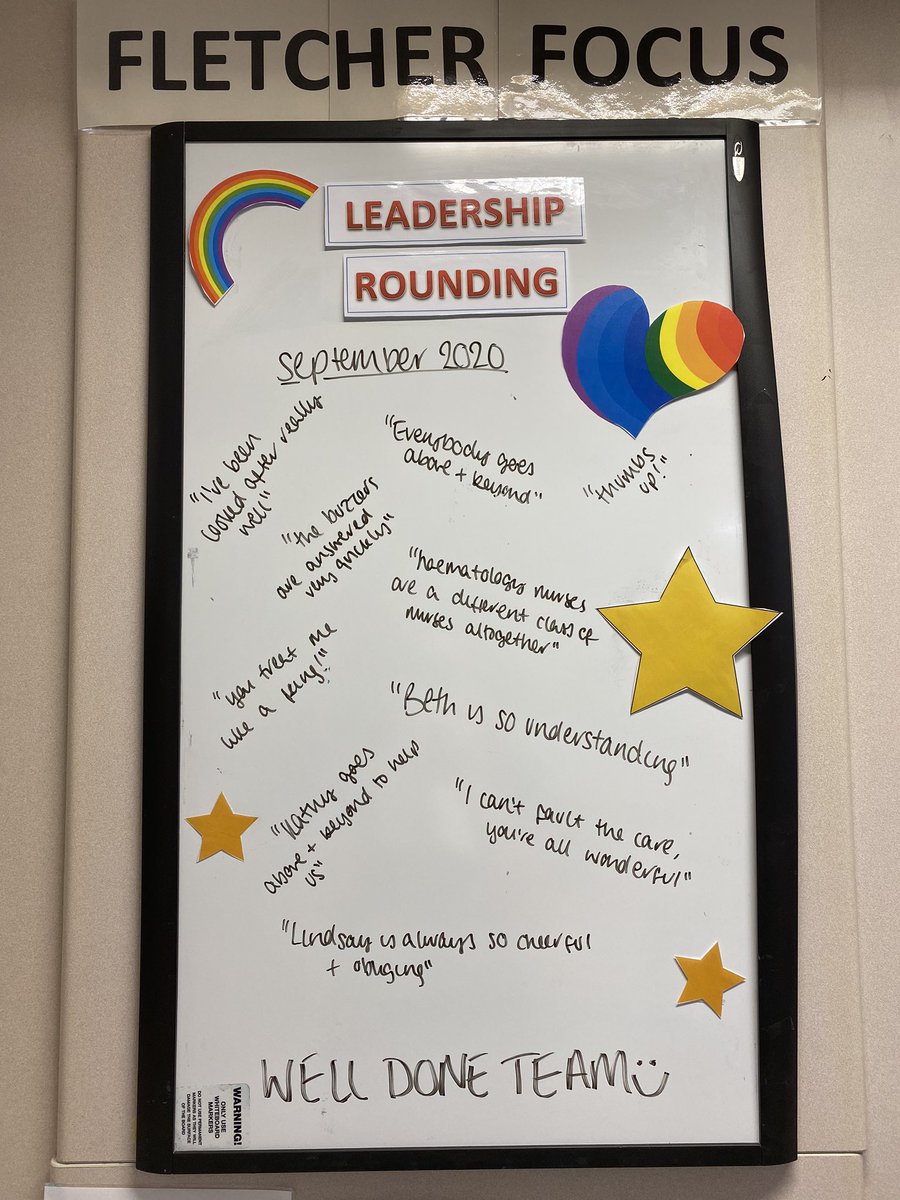 FLETCHER FOCUS
LEADERSHIP
ROUNDING
september 2020
"I've been
looked after really
well"
"Everybody goes
above + beyond"
"thumbs
up!"
"the buzzers
are answered
very quickly"
"haematology nurses
are a different class of
nurses altogether"
"you treat me
like a king!"
"Beth is so understanding"
"Kathy goes
above + beyond to help
us"
"I can't fault the care,
you're all wonderful"
"Lindsay is always so cheerful
+ obliging"
WELL DONE TEAM
WARNING!
ONLY USE
WHITEBOARD
MARKERS
DO NOT USE PERMANENT
MARKERS AS THEY WILL
DAMAGE THE SURFACE
OF THE BOARD